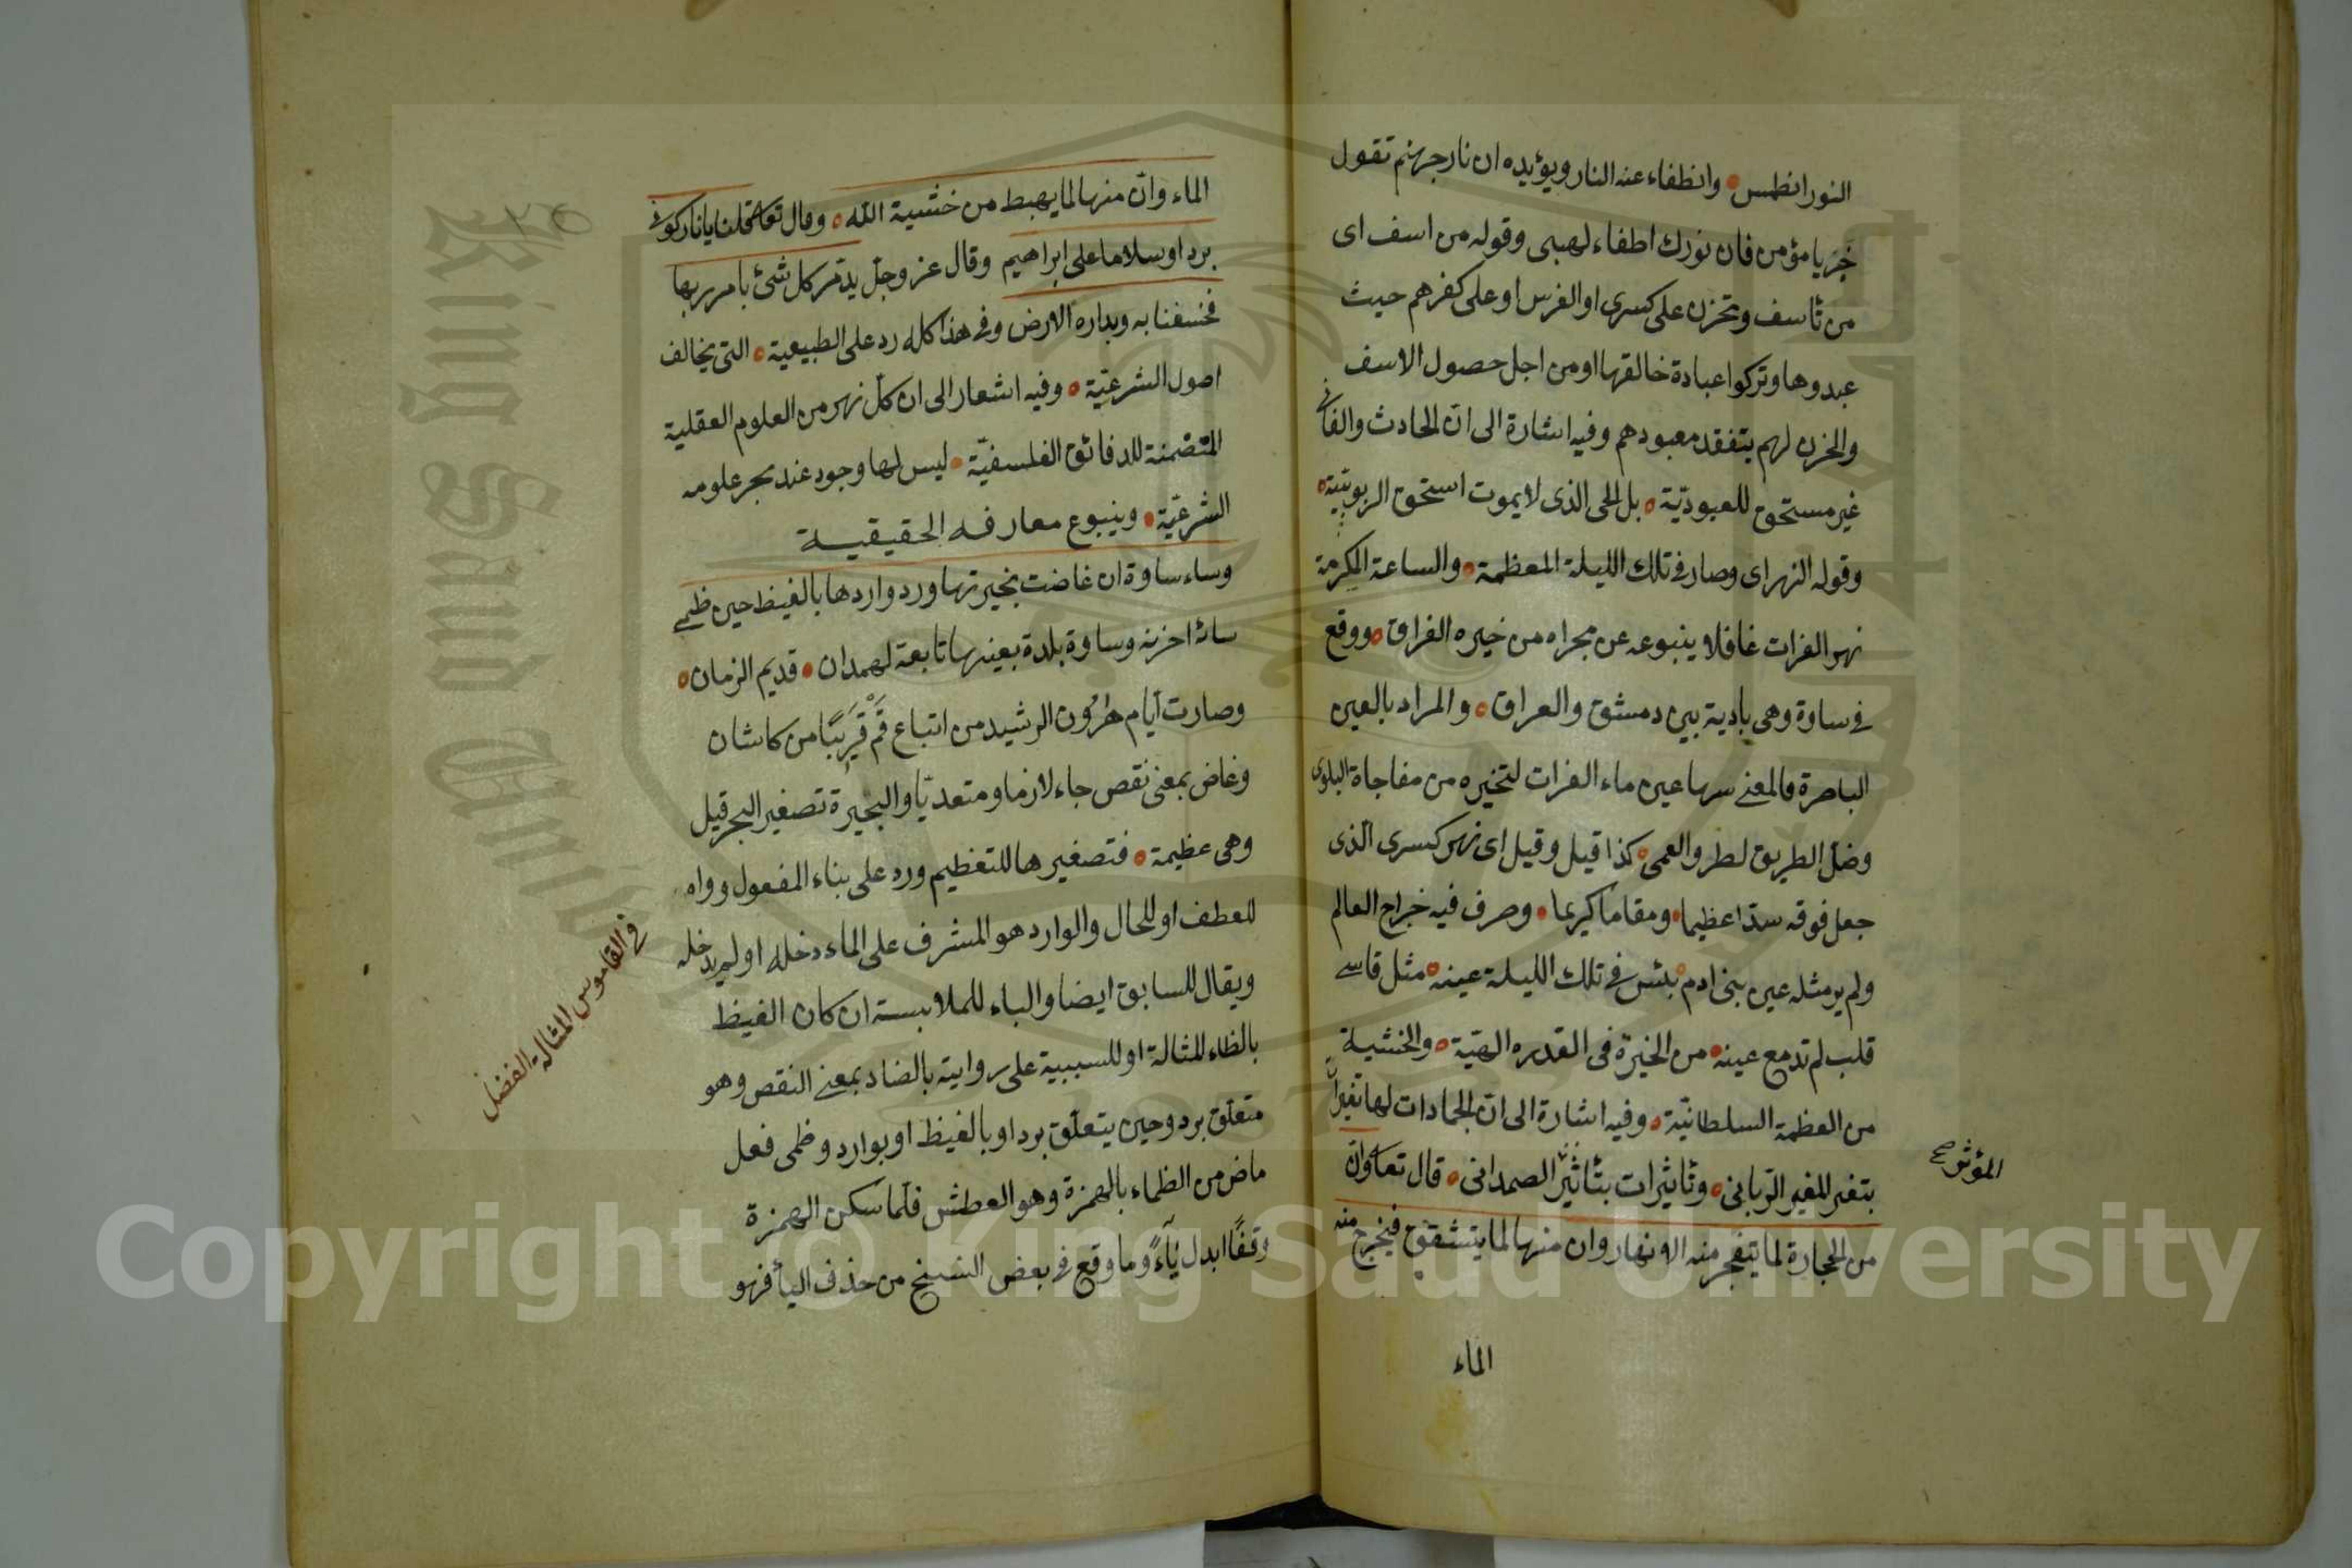 النور انطمس وانطفاء عنه النار ويؤيده ان نار جهنم تقول
جز يا مؤمن فان نورك اطفاء لهبى وقوله من اسف اى
من تأسف وتحزن على كسرى او الفرس او على كفرهم حيث
عبدوها وتركوا عبادة خالقها او من اجل حصول الاسف
والحزن لهم بتفقد معبودهم وفيه اشارة الى ان الحادث والفانى
غير مستحق للعبوديّة بل الحى الذى لا يموت استحق الربوبيّة
وقوله النهر اى وصار فى تلك الليلة المعظمة والساعة المكرمة
نهر الفرات غافلا ينبوعه عن مجراه من خيره الفراق ووقع
فى ساوة وهى بادية بين دمشق والعراق والمراد بالعين
الباصرة فالمعنى سها عين ماء الفرات لتخيره من مفاجاة البلوى
وضل الطريق لطر والعمى كذا قيل وقيل اى نهر كسرى الذى
جعل فوقه سدّا عظيما ومقاما كريما وصرف فيه خراج العالم
ولم ير مثله عين بنى ادم بلئس فى تلك الليلة عينه مثل قاسى
قلب لم تدمع عينه من الخيرة فى القدره الهيّة والخشية
من العظمة السلطانيّة وفيه اشارة الى ان الجمادات لها تغيرات
بتغير المغير الربانى وتأثيرات بتأثير الصمدانى قال تعا وان
من الحجارة لما يتفجر منه الانهار وان منها لما يتشقق فيخرج منه
المؤثر صح
الماء
الماء وان منها لما يهبط من خشية الله وقال تعا قلنا يا نار كونى
بردا وسلاما على ابراهيم وقال عز وجل يدمر كل شئ بامر ربها
فخسفنا به وبداره الارض وفى هذا كله رد على الطبيعية التى يخالف
اصول الشرعيّة وفيه اشعار الى ان كل نهر من العلوم العقلية
المتضمنة للدقائق الفلسفيّة ليس لها وجود عند بحر علومه
الشرعيّة وينبوع معارفه الحقيقية
وساء ساوة ان غاضت بحيرتها ورد واردها بالغيظ حين ظمى
ساءُ احزنه وساوة بلدة بعينها تابعة لهمدان قديم الزمان
وصارت ايام هرون الرشيد من اتباع قُمْ قَرِيبًا من كاشان
وغاض بمعنى نقص جاء لازما ومتعديّا والبحيرة تصغير البحر قيل
وهى عظيمة فتصغيرها للتعظيم ورد على بناء المفعول وواه
للعطف او للحال والوارد هو المشرف على الماء دخله او لم يدخله
ويقال للسابق ايضا والباء للملابسة ان كان الغيظ
بالظاء المثالة او للسببية على رواية بالضاد بمعنى النقص وهو
متعلق برد وحين يتعلق برد او بالغيظ او بوارد وظمى فعل
ماض من الظماء بالهمزة وهو العطش فلما سكن الهمزة
وقفًا ابدل ياءً وما وقع فى بعض النسخ من حذف اليأ فهو
فى القاموس المثالة الفضل
Copyright © King Saud University